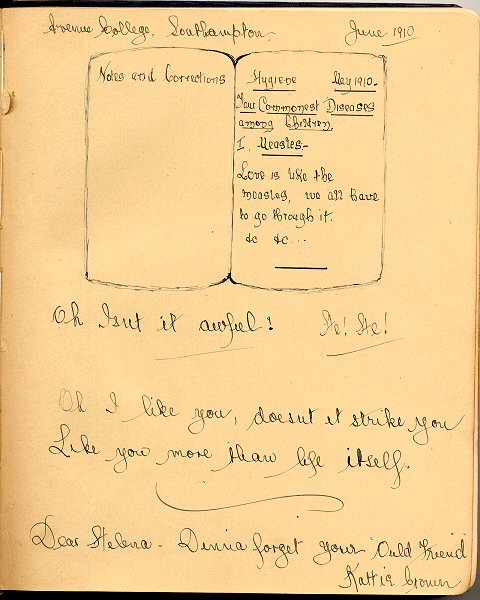 Avenue College, Southampton. June 1910
Notes and Corrections
Hygiene May 1910.
Four Commonest Diseases
among Children.
I. Measles.
Love is like the
measles, we all have
to go through it.
&c &c...
Oh Isnt it awful! He! He!
Oh I like you, doesnt it strike you
Like you more than life itself.
Dear Helena. Dinna forget your Ould Friend
Kattie Brown